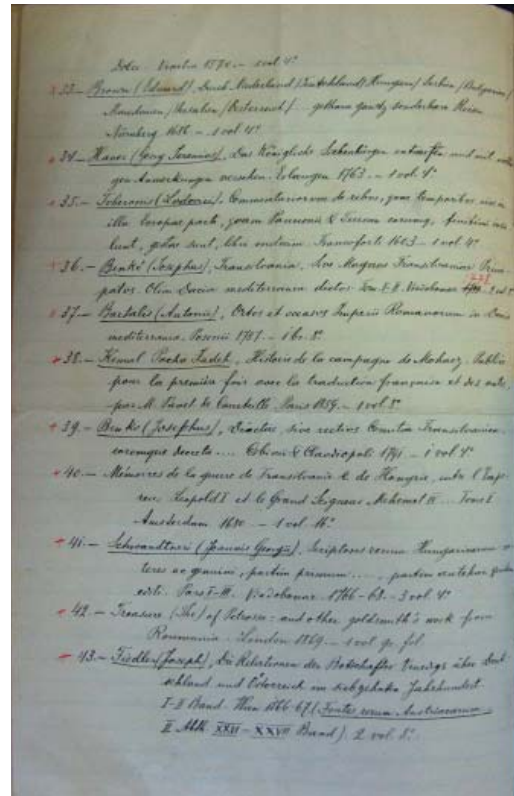 Dolce Venetia 1572 — 1 vol 4°
+ 33. — Brown (Eduard), Durch Niederland / Teutschland / Hungarn / Serbien / Bulgarien /
Macedonien / Thessalien / Oesterreich / ... gethane gantz sonderbare Reisen
Nürnberg 1686 — 1 vol 4°
+ 34. — Haner (Georg Jeremias), Das Königliche Siebenbürgen entworfen und mit
gen Anmerkungen versehen. Erlangen 1763 — 1 vol. 4°
+ 35. — (Ludovici), Commentariorum de rebus, quae temporibus eius in
illa Europae parte, quam Pannonii & Turcae eorumq. finitimi inco
lunt, gestae sunt, libri Francoforti 1603 — 1 vol 4°
+ 36. — Benkő (Josephus), Transilvania, sive Magnus Transilvaniae Princi
patus. Olim Dacia mediterranea dictus. Tom. I-II. Vindobonae — 2 vol 8°
+ 37. — (Antonii), Ortus et occasus Imperii Romanorum in Dacia
mediterranea. Posonii 1787 — 1 br. 8°
+ 38. — Kemal Pacha Zadeh, Histoire de la campagne de Mohacz. Publiée
pour la première fois avec la traduction française et des notes,
par M. Pavet de Courteille. Paris 1859. — 1 vol 8°
+ 39. — Benkő (Josephus), Diaetae, sive rectius Comitia Transilvanica
eorumque decreta .... Cibinii & Claudiopoli 1791 — 1 vol 4°
+ 40. — Mémoires de la guerre de Transilvanie & de Hongrie, entre l'Empe
reur Leopold I et le Grand Seigneur Mehemet IV ... Tome I
Amsterdam 1680 — 1 vol. 16°
+ 41. — Schwandtneri (Joannis Georgii), Scriptores rerum Hungaricarum ve
teres ac genuini, partim primum ...., partim
editi. Pars I-III. Vindobonae 1766-68. — 3 vol. 4°
+ 42. — Treasure (The) of Petrossa: and other goldsmith's work from
Roumania. London 1869. — 1 vol gr. fol.
+ 43. — Fiedler (Joseph), Die Relationen der Botschafter Venedigs über Deut
schland und Österreich im siebzehnten Jahrhundert.
I-II Band. Wien 1866-67 (Fontes rerum Austriacarum
II Abth. XXVI — XXVII Band). 2 vol. 8°.